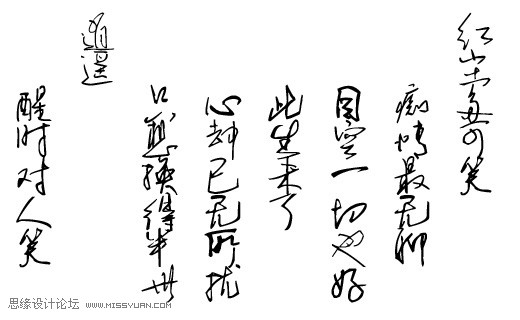 红尘多可笑
痴情最无聊
目空一切也好
此生未了
心却已无所扰
只想换得半世
逍遥
醒时对人笑
思缘设计论坛 WWW.MISSYUAN.COM